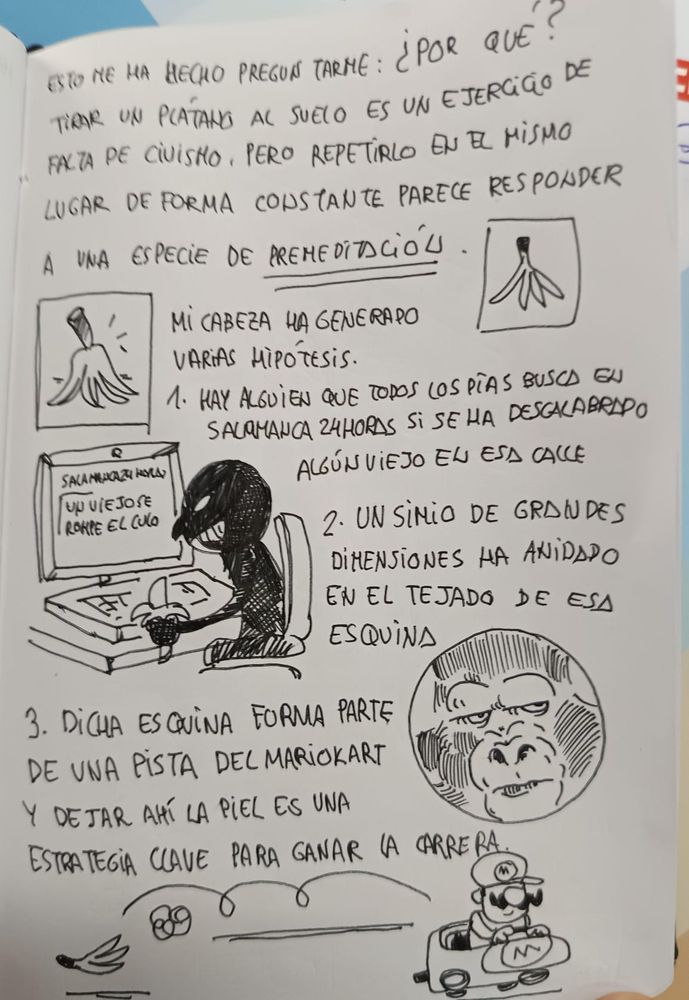 ESTO ME HA HECHO PREGUNTARME: ¿POR QUÉ?
TIRAR UN PLÁTANO AL SUELO ES UN EJERCICIO DE
FALTA DE CIVISMO, PERO REPETIRLO EN EL MISMO
LUGAR DE FORMA CONSTANTE PARECE RESPONDER
A UNA ESPECIE DE PREMEDITACIÓN.
MI CABEZA HA GENERADO
VARIAS HIPÓTESIS.
1. HAY ALGUIEN QUE TODOS LOS DÍAS BUSCA EN
SALAMANCA 24HORAS SI SE HA DESCALABRADO
ALGÚN VIEJO EN ESA CALLE
SALAMANCA24HORAS
UN VIEJO SE
ROMPE EL CULO
2. UN SIMIO DE GRANDES
DIMENSIONES HA ANIDADO
EN EL TEJADO DE ESA
ESQUINA
3. DICHA ESQUINA FORMA PARTE
DE UNA PISTA DEL MARIOKART
Y DEJAR AHÍ LA PIEL ES UNA
ESTRATEGIA CLAVE PARA GANAR LA CARRERA.
M
M